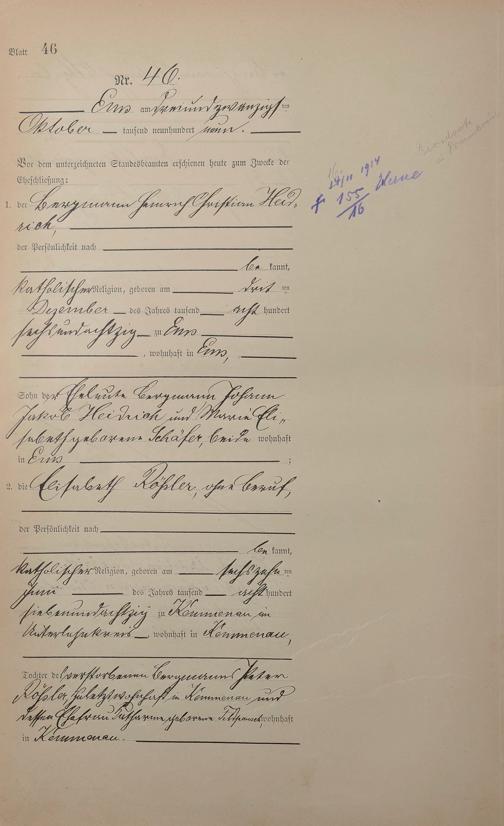 Blatt 46
Nr. 46.
Ems am dreiundzwanzigsten
Oktober tausend neunhundert neun.
Vor dem unterzeichneten Standesbeamten erschienen heute zum Zwecke der
Eheschließung:
1. der Bergmann Heinrich Christian Heid-
rich,
der Persönlichkeit nach
be kannt,
katholischer Religion, geboren am dritten
Dezember des Jahres tausend acht hundert
sechsundachtzig zu Ems
, wohnhaft in Ems,
Sohn der Eheleute Bergmann Johann
Jakob Heidrich und Marie Eli-
sabeth geborene Schäfer, beide wohnhaft
in Ems ;
2. die Elisabeth Rößler, ohne Beruf,
der Persönlichkeit nach
be kannt,
katholischer Religion, geboren am sechszehnten
Juni des Jahres tausend acht hundert
siebenundachtzig zu Kemmenau im
Unterlahnkreis wohnhaft in Kemmenau,
Tochter des verstorbenen Bergmanns Peter
Rößler, zuletzt wohnhaft in Kemmenau und
dessen Ehefrau Katharine geborene wohnhaft
in Kemmenau.
1914
155
16